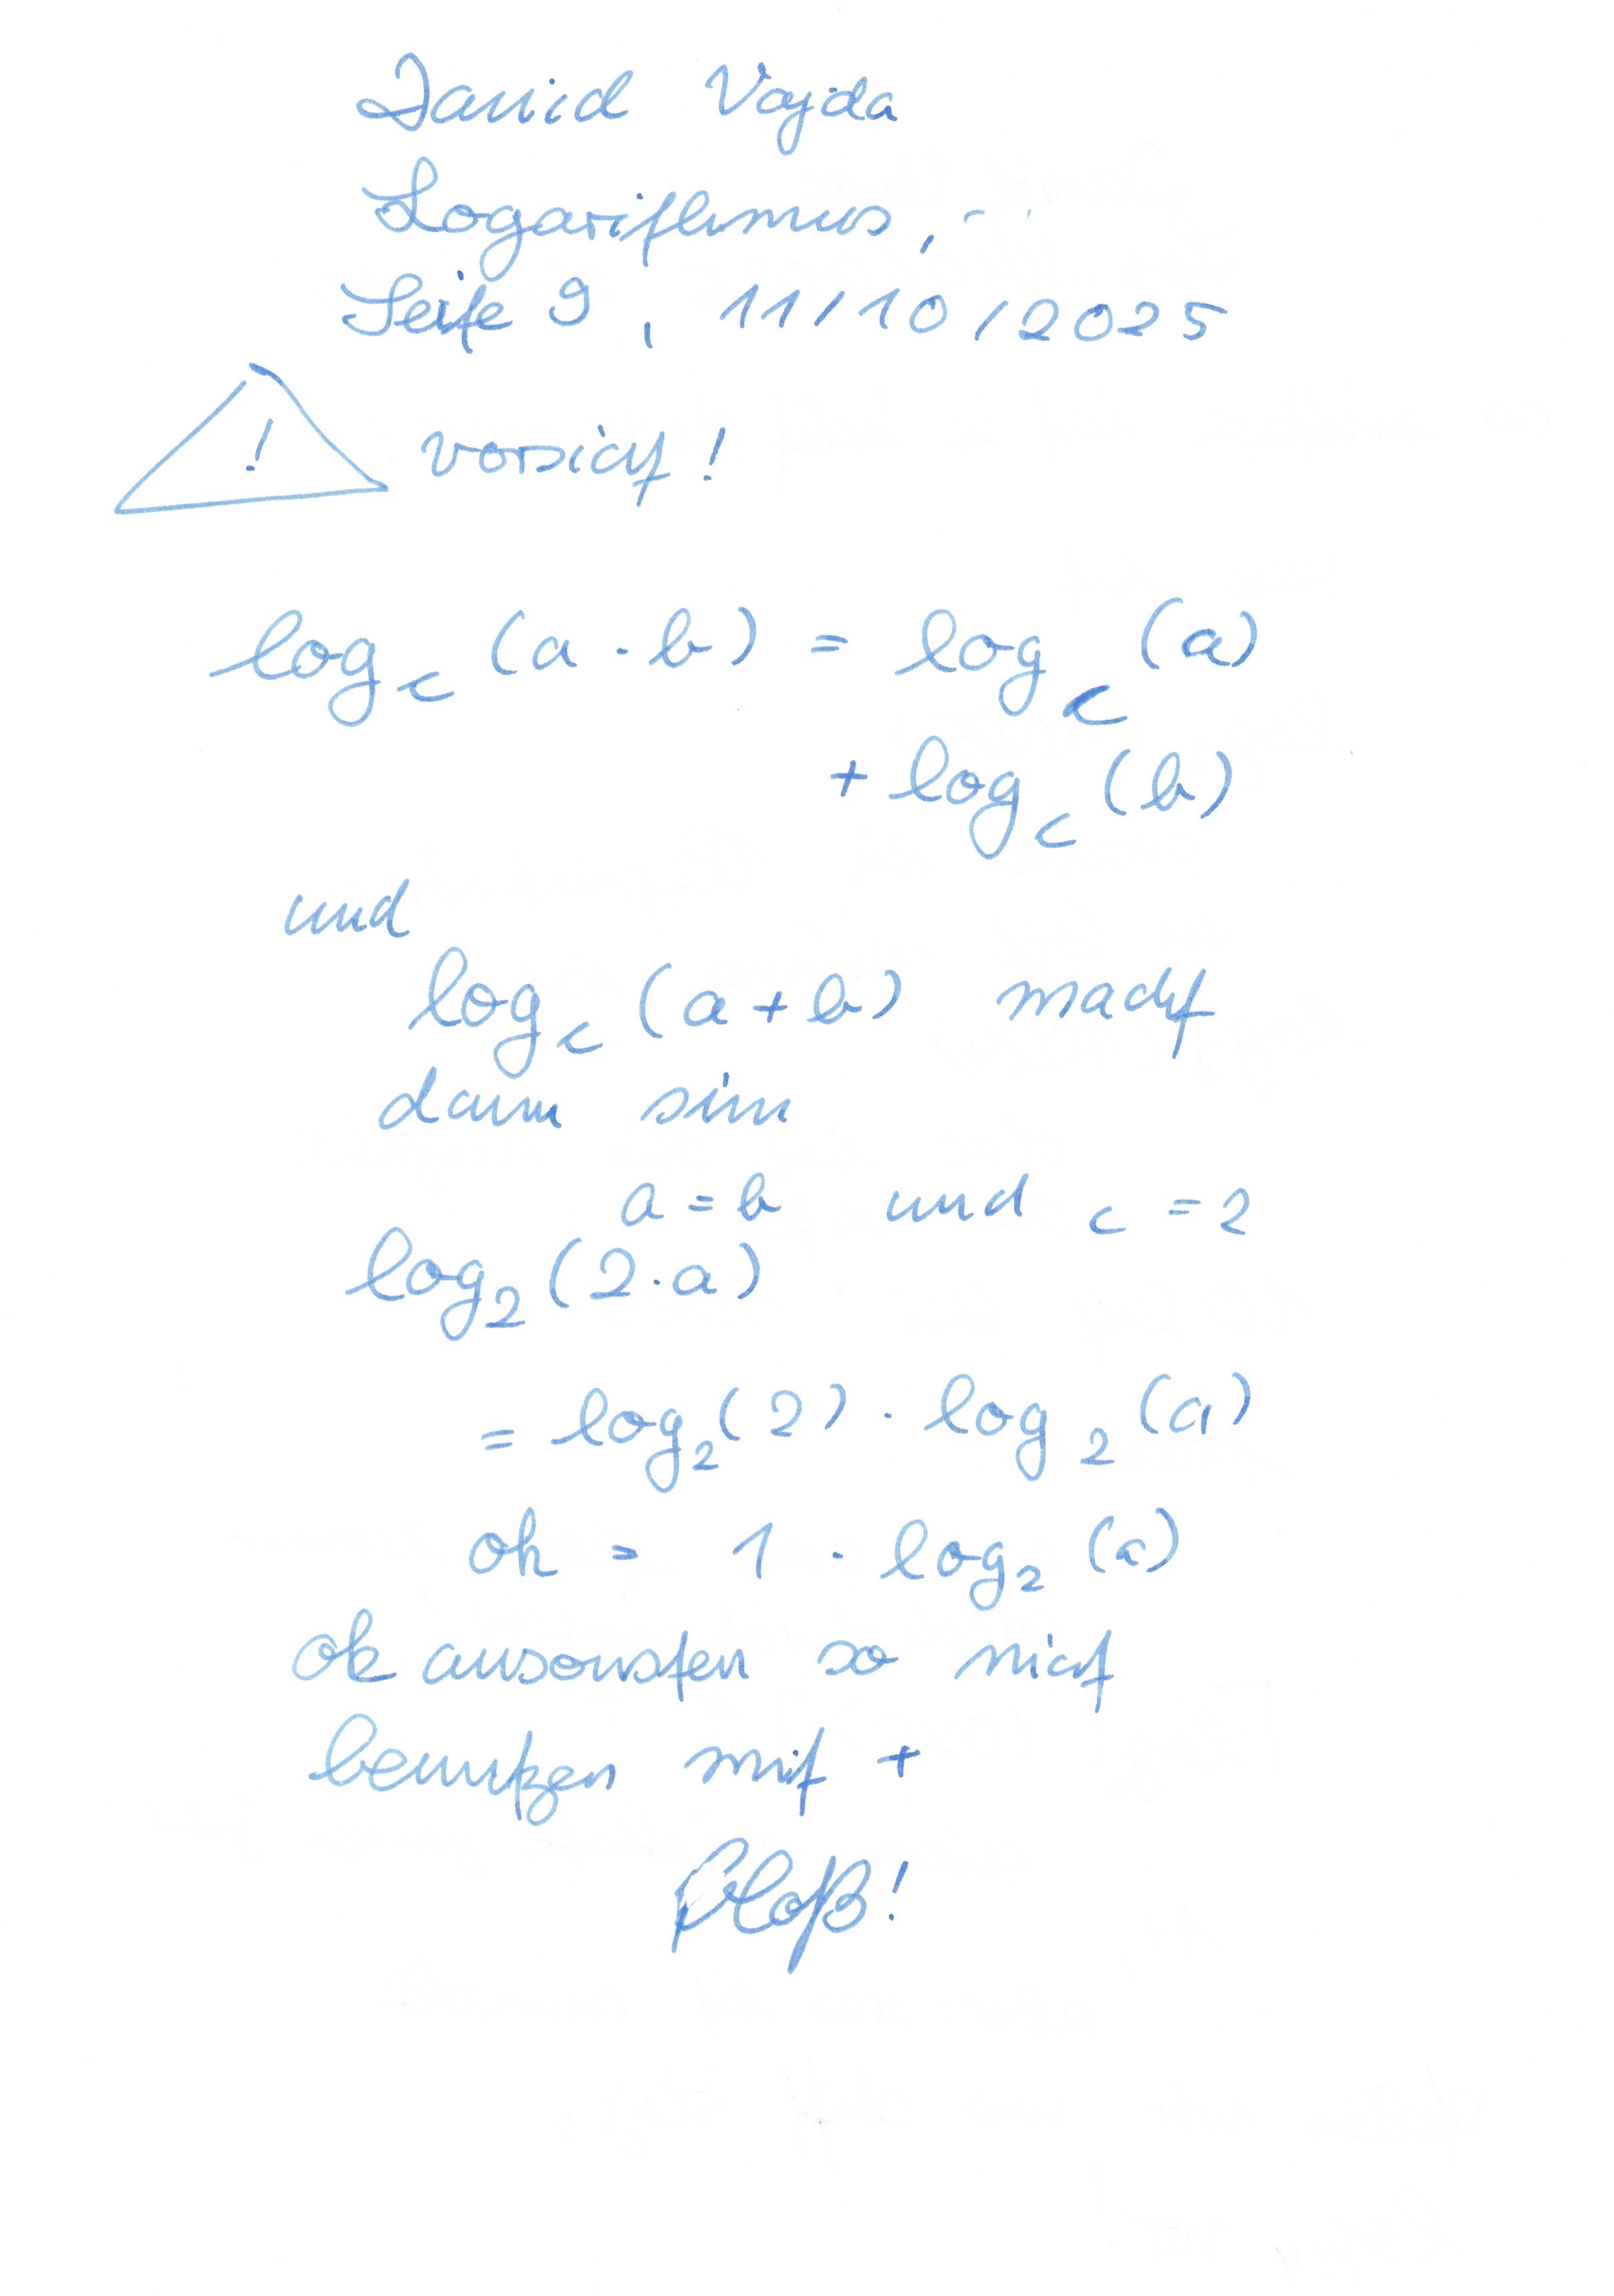 David Vajda
Logarithmus,
Seite 9, 11/10/2025
! vorsicht!
log_c (a · b) = log_c (a)
+ log_c (b)
und
log_c (a + b) macht
dann sinn
a = b und c = 2
log_2 (2 · a)
= log_2 (2) · log_2 (a)
oh = 1 · log_2 (a)
ok ansonsten so nicht
benutzen mit +
Bloß!